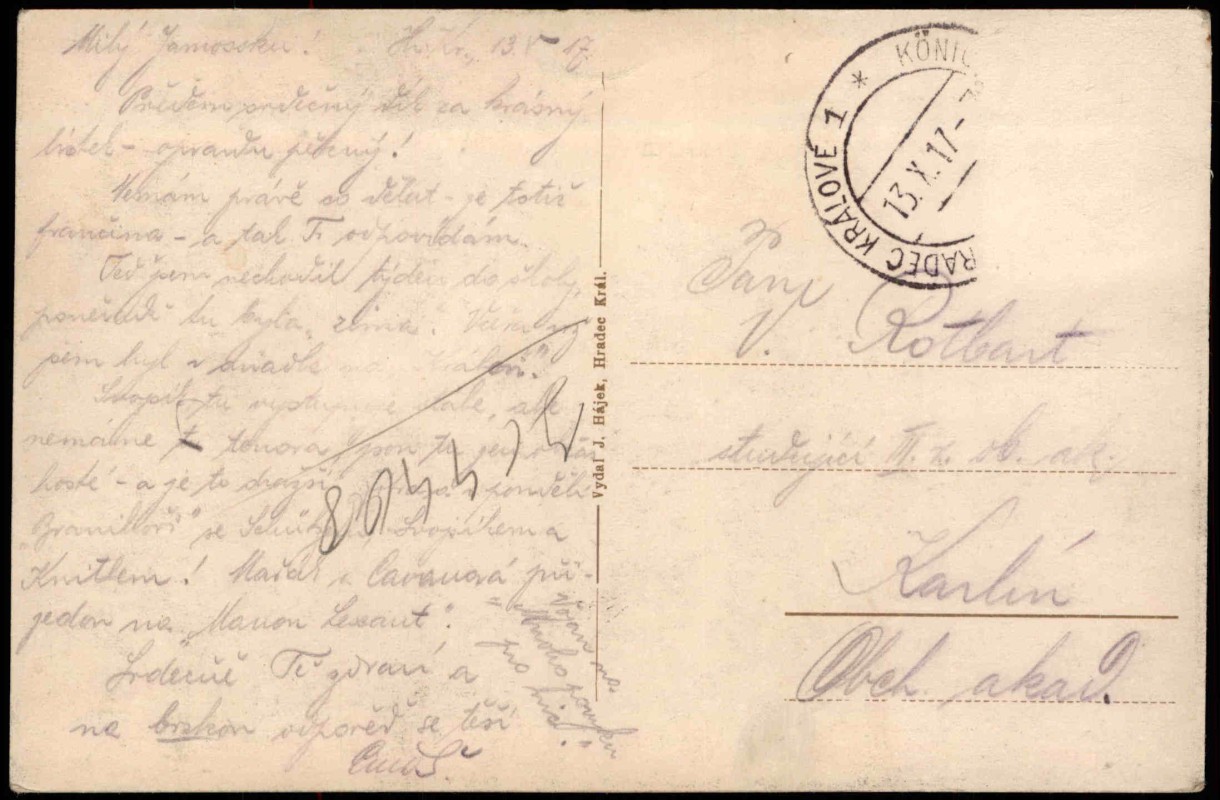 Milý Jamossku! Hr. Kr., 13. X 17.
Předem srdečný dík za krásný
lístek - opravdu pěkný!
Nemám právě co dělat - je totiž
frančina - a tak Ti odpovídám.
Teď jsem nechodil týden do školy,
poněvadž tu byla "zima". Včera
jsem byl v divadle na
tu vystupuje stále, ale
nemáme tenora jsou tu
hosté - a je to dražší. v pondělí
"Braniboři" se a
Knitlem! Mařák a Cavanová při-
jedou na "Manon Lescaut".
Srdečně Tě zdraví a
na brzkou odpověď se těší
"Mnoho povyku
pro nic."
8
Vydal J. Hájek, Hradec Král.
KÖNIG
RADEC KRÁLOVÉ 1 *
13.X.17-7
Pan
V. Rotbart
studující II. r. ob. ak.
Karlín
Obch. akad.